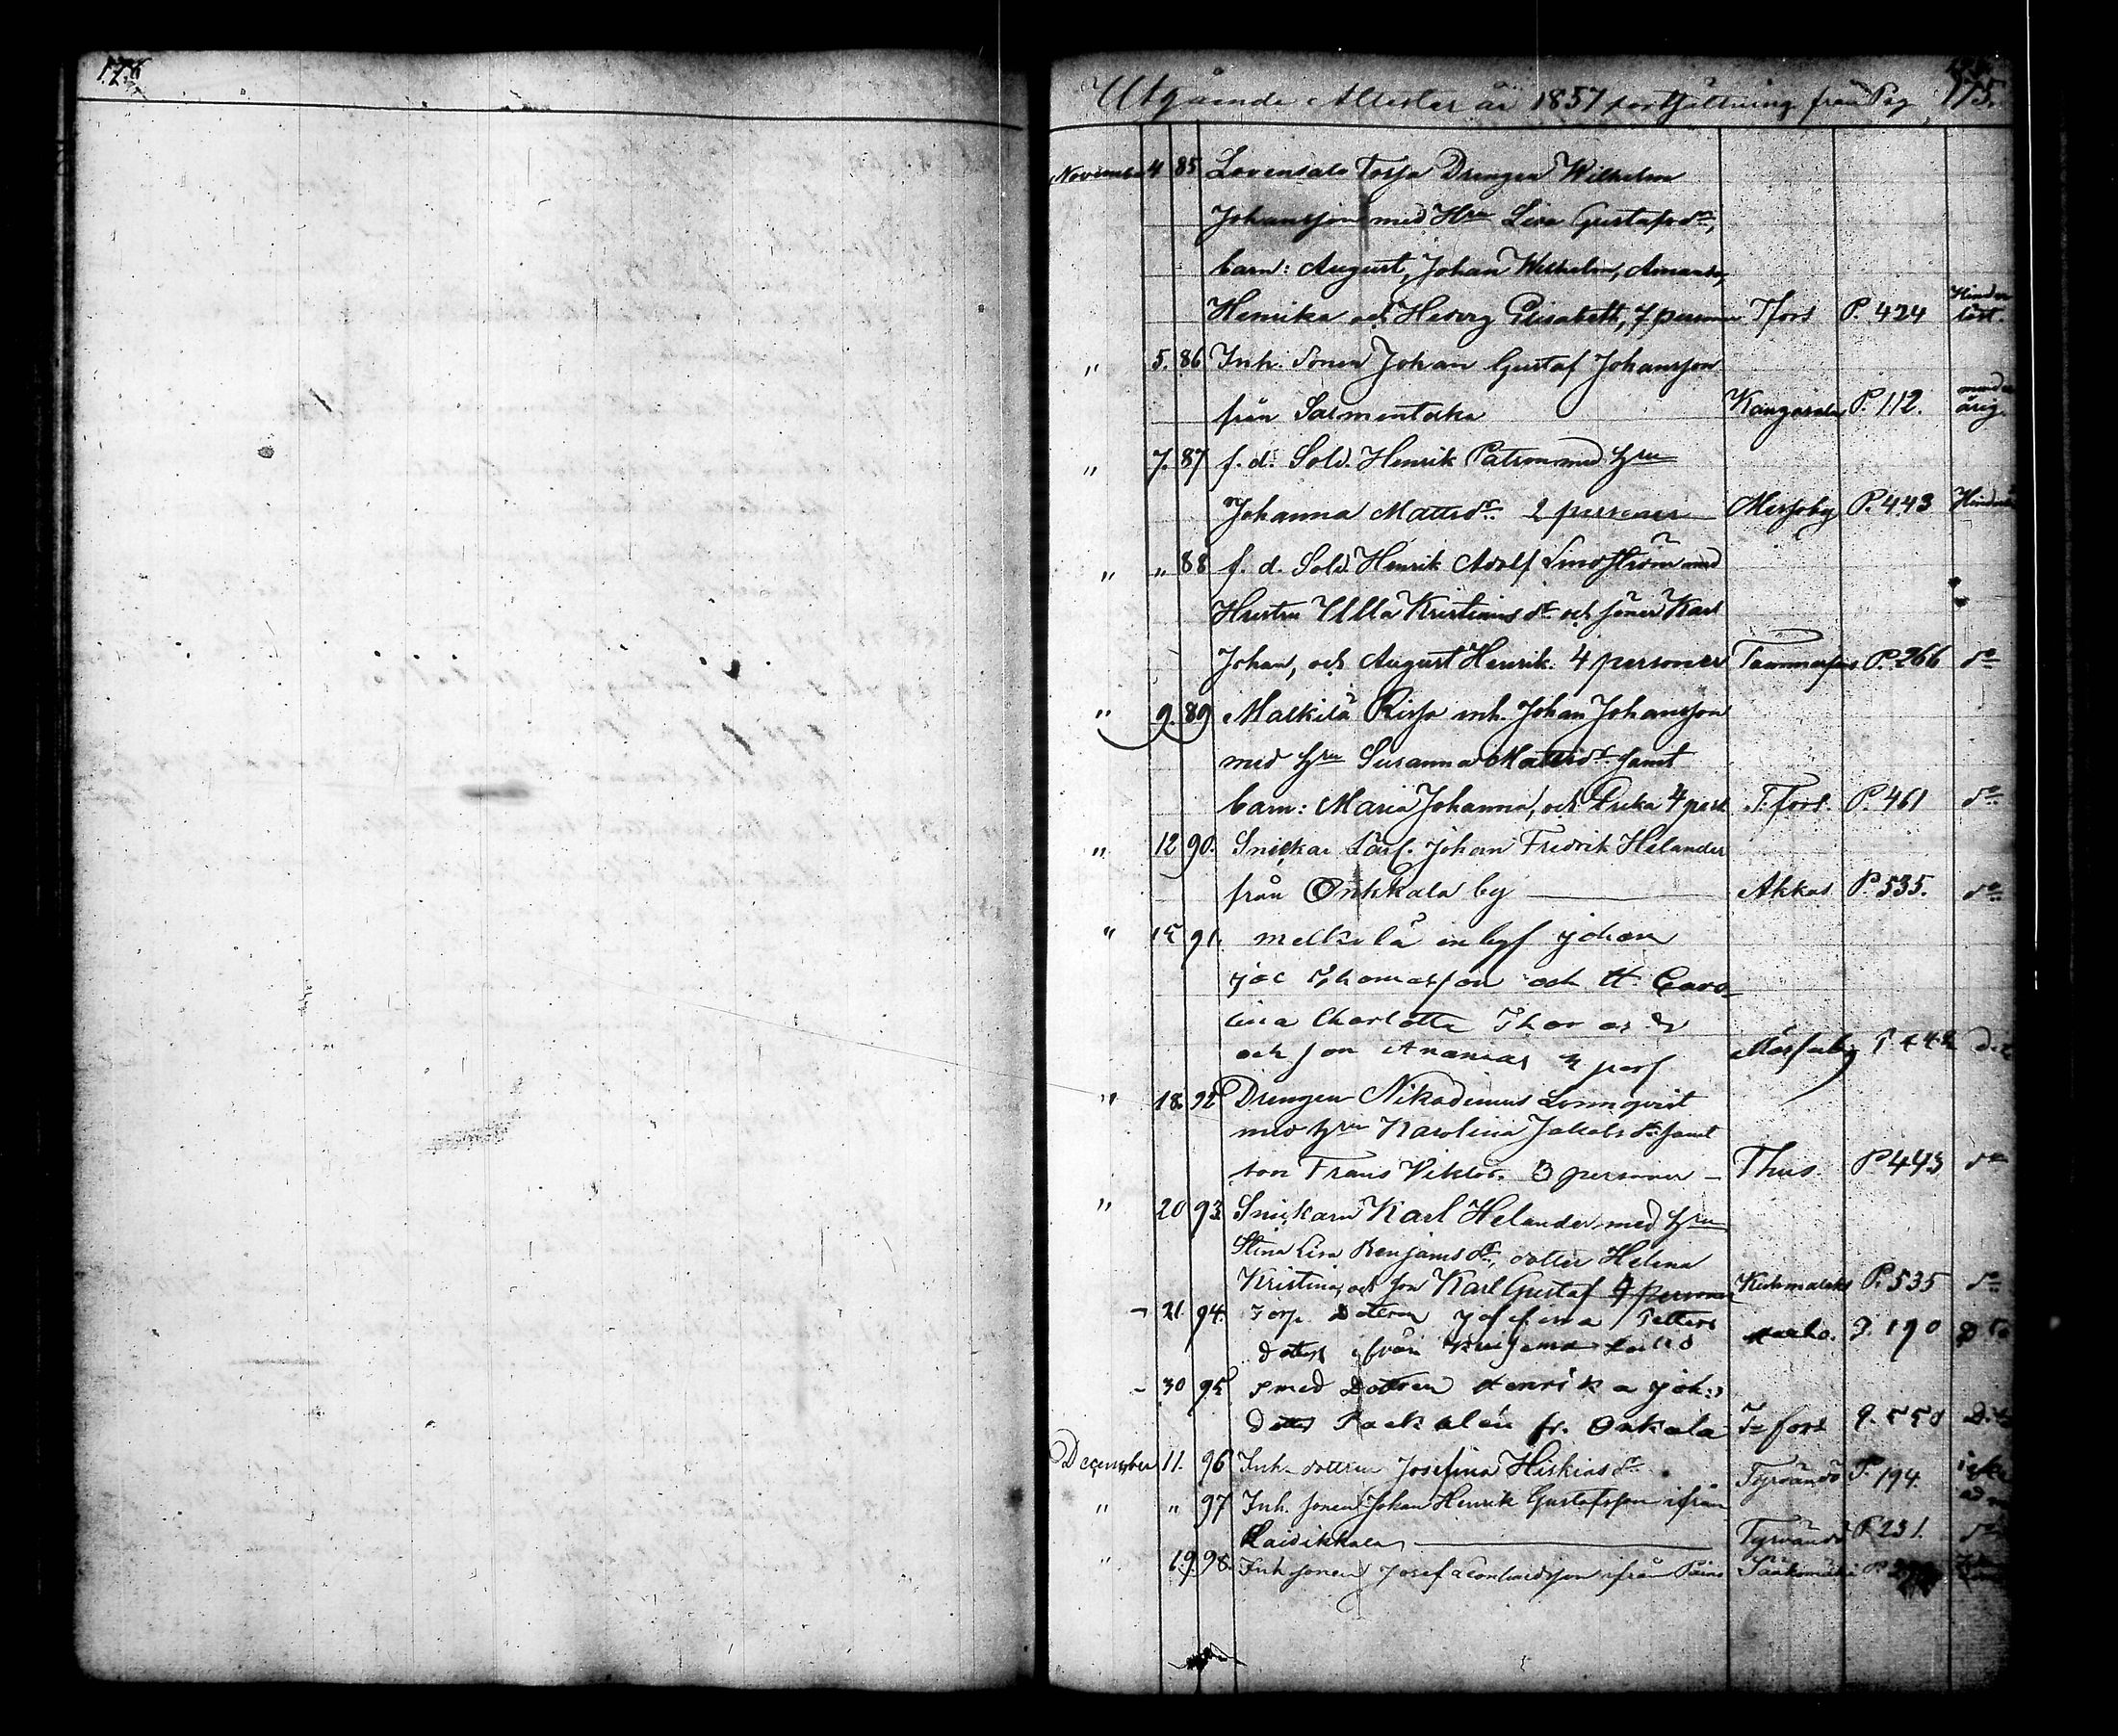 Utgående Attester år 1857 fortsättning från Pag 175.
November 4 85 Lovensalo Torp Drengen Wilhelm
Johansson med Hru Lisa Gustafsdr,
barn: August, Johan Wilhelm, Amanda,
Henrika och Hedvig Elisabeth, 7 personer Tfors P. 424 Hinder löst.
" 5. 86 Inh. Sonen Johan Gustaf Johansson
från Sarmentocka Kangasala P. 112. mind årig.
" 7. 87 f. d. Sold. Henrik Patron med Hru
Johanna Mattsdr. 2 personer Messoby P. 443
" " 88 f. d. Sold. Henrik Adolf Lindström med
Hustru Ulla Kristiansdr och söner Karl
Johan, och August Henrik. 4 personer Tammerfors P. 266 do
" 9. 89 Malkilä inh. Johan Johansson
med Hru Susanna Mattsdr. samt
barn: Maria Johanna, och Erika 4 pers T.fors. P. 461 do
" 12 90. Snickar Lärl. Johan Fredrik Helander
från Onkkala by Akkas P. 535. do
" 15 91. melkilä Johan
Jac Thomasson och H. Caro-
lina Charlotta
och son Ananias 3 pers
" 18. 92 Drengen Nikodemus Lönnqvist
med Hru Karolina Jakobsdr. samt
son Frans Viktor. 3 personer - Thus P 443 do
" 20 93. Snickarn Karl Helander med Hru
Stina Lisa Benjamsdr, dotter Helena
Kristina, och son Karl Gustaf 4 personer Kuhmalaks P. 535 do
- 21 94. Torp. Dotern Josefina Petters
doter ifrån P. 190
- 30 95 smed Dottren Henrika Joh:s
Dotter fr. Onkala T:fors
December 11. 96 Inh. dottren Josefina Hiskiasdr. Tyrvändö P. 194.
" " 97 Inh. Sonen Johan Henrik Gustafsson ifrån
Laidikkala Tyrvändö P. 231. do
" 19. 98. Inh. Sonen Josef Leonhardsson ifrån Sääksmäki